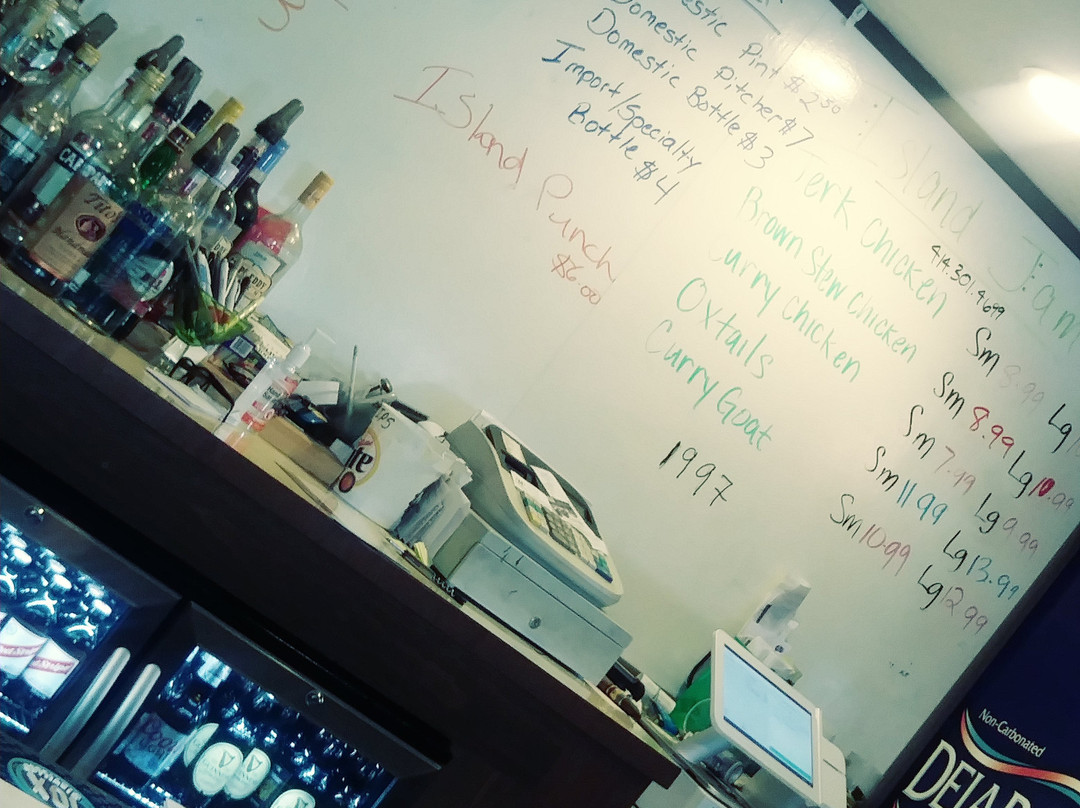 Domestic Pint $2.50
Domestic Pitcher $7
Domestic Bottle $3
Import/Specialty
Bottle $4
Island Punch
$6.00
Island Jam
414.301.4699
Jerk Chicken Sm 8.99 Lg
Brown Stew Chicken Sm 8.99 Lg 10.99
Curry chicken Sm 7.99 Lg 9.99
Oxtails Sm 11.99 Lg 13.99
Curry Goat Sm 10.99 Lg 12.99
1997
Tito's
Non-Carbonated